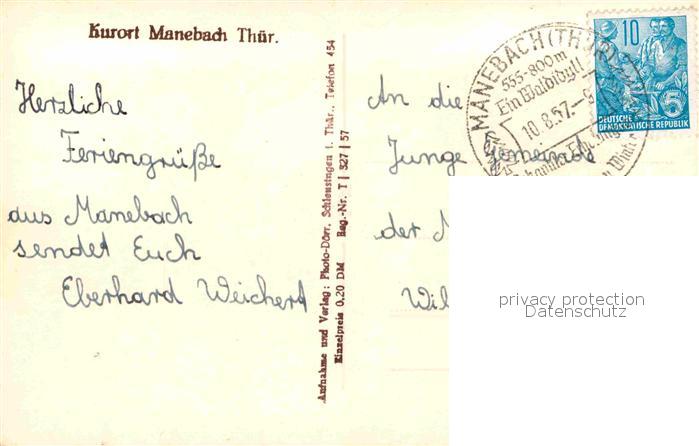 Kurort Manebach Thür.
Herzliche
Feriengrüße
aus Manebach
sendet Euch
Eberhard Weichert
Aufnahme und Verlag: Photo-Dörr, Schleusingen i. Thür., Telefon 454
Einzelpreis 0.20 DM Reg.-Nr. T | 327 | 57
MANEBACH (THÜR)
555-800m
Ein Waldidyll
10.8.57.-
10
5
DEUTSCHE
DEMOKRATISCHE REPUBLIK
An die
Junge Gemeinde
der
Wil
privacy protection
Datenschutz